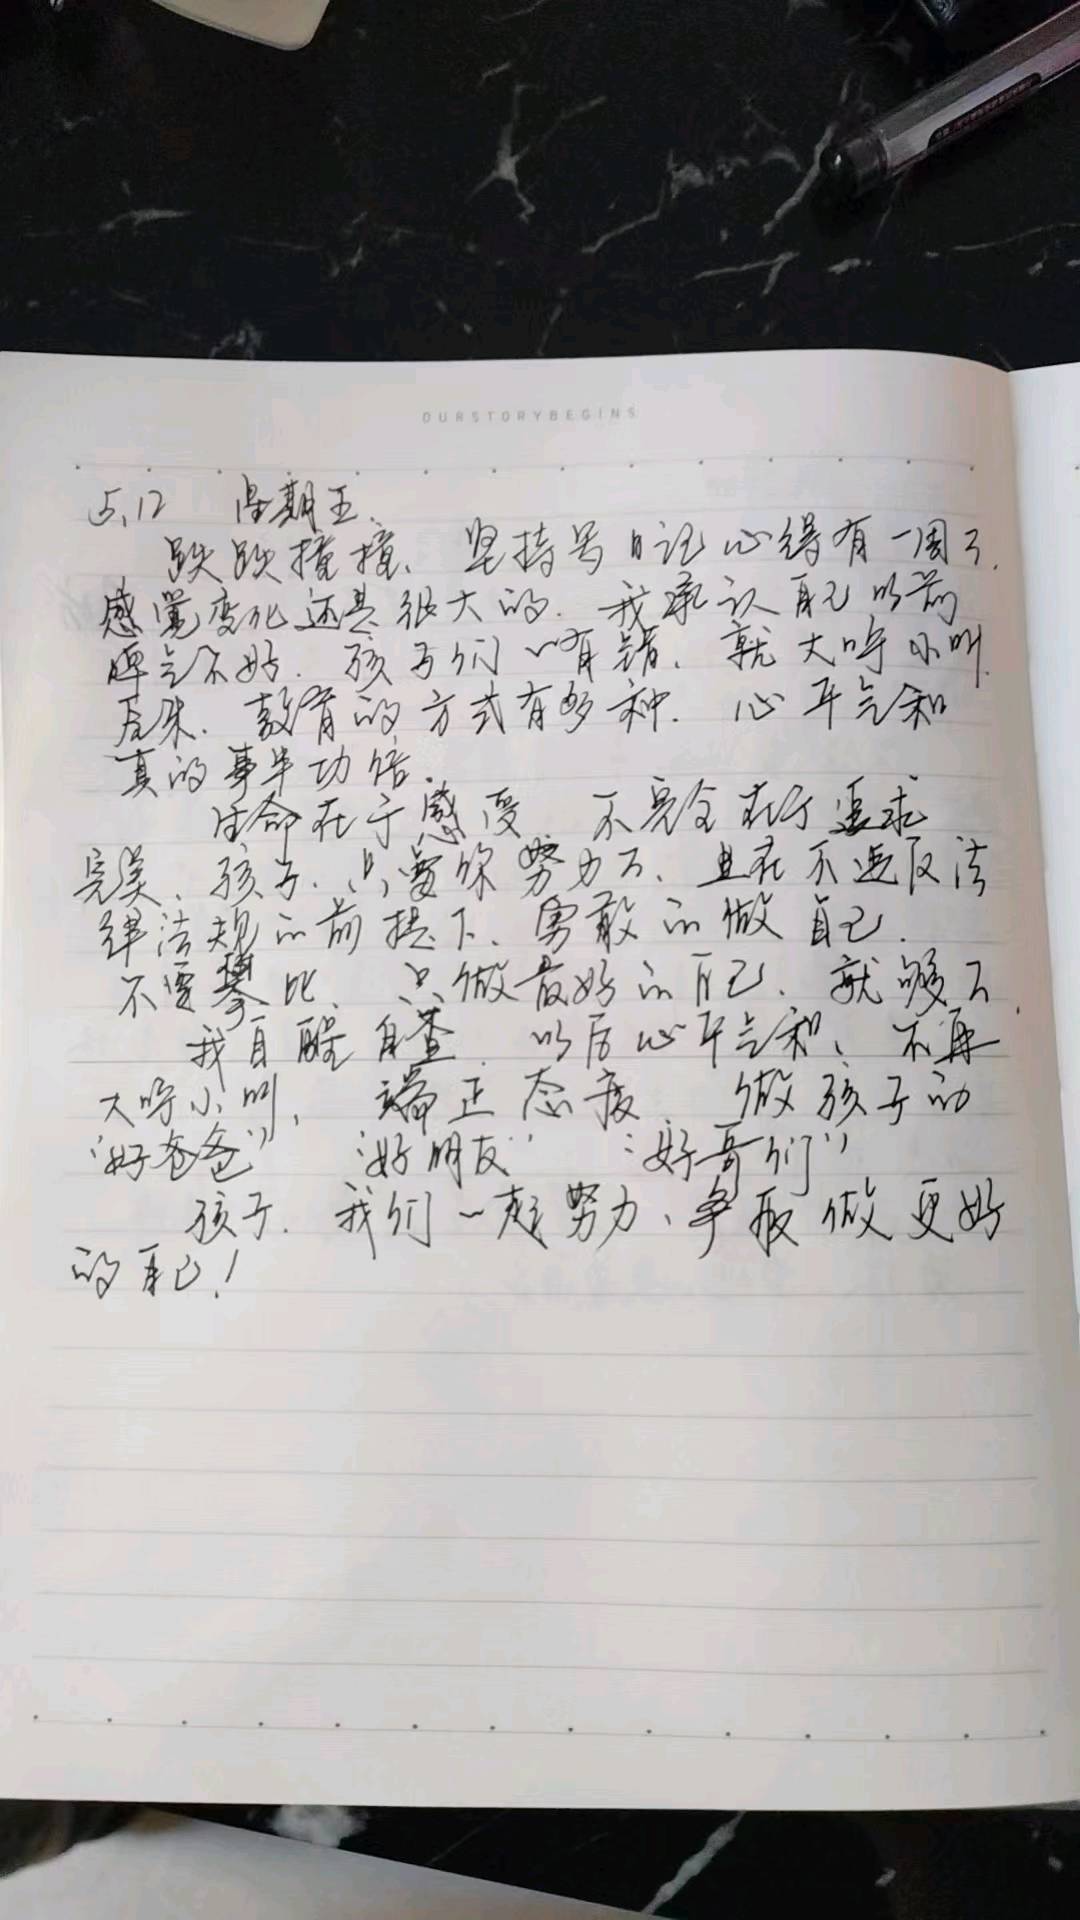 OURSTORYBEGINS
5.12 星期五.
跌跌撞撞、坚持写日记心得有一周了.
感觉变化还是很大的. 我承认自己以前
脾气不好. 孩子们一有错、就大呼小叫.
后来. 教育的方式有多种. 心平气和
真的事半功倍.
生命在于感受 不完全在于追求
完美、孩子、只要你努力了、且在不违反法
律法规的前提下、勇敢的做自己.
不要攀比、只做最好的自己、就够了.
我自醒自查. 以后心平气和、不再
大呼小叫, 端正态度、做孩子的
“好爸爸” “好朋友” “好哥们”
孩子. 我们一起努力、争取做更好
的自己!